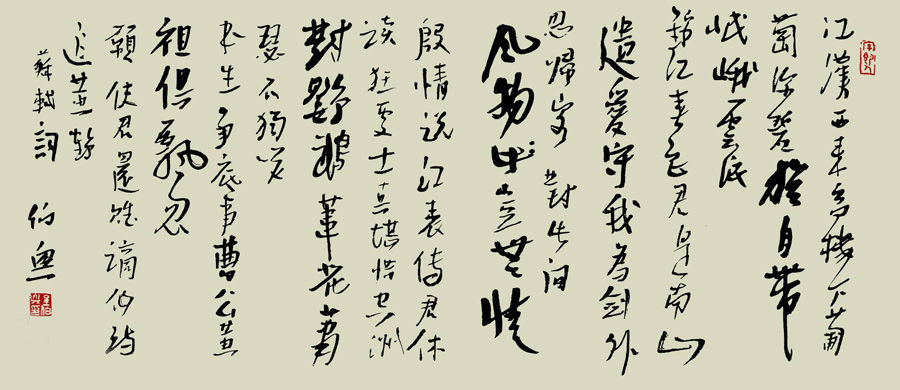 江漢西来高楼下葡
萄深碧猶自帶
岷峨雪浪
錦江春色君是南山
遺愛守我為劍外
思歸客對此间
風物岂無情
殷情说江表传君休
读狂處士真堪惜空洲
對鸚鵡葦花萧
瑟不獨笑
书生争底事曹公黄
祖俱飘忽
願使君還賦謫仙诗
追黄鶴
蘇軾詞
伯